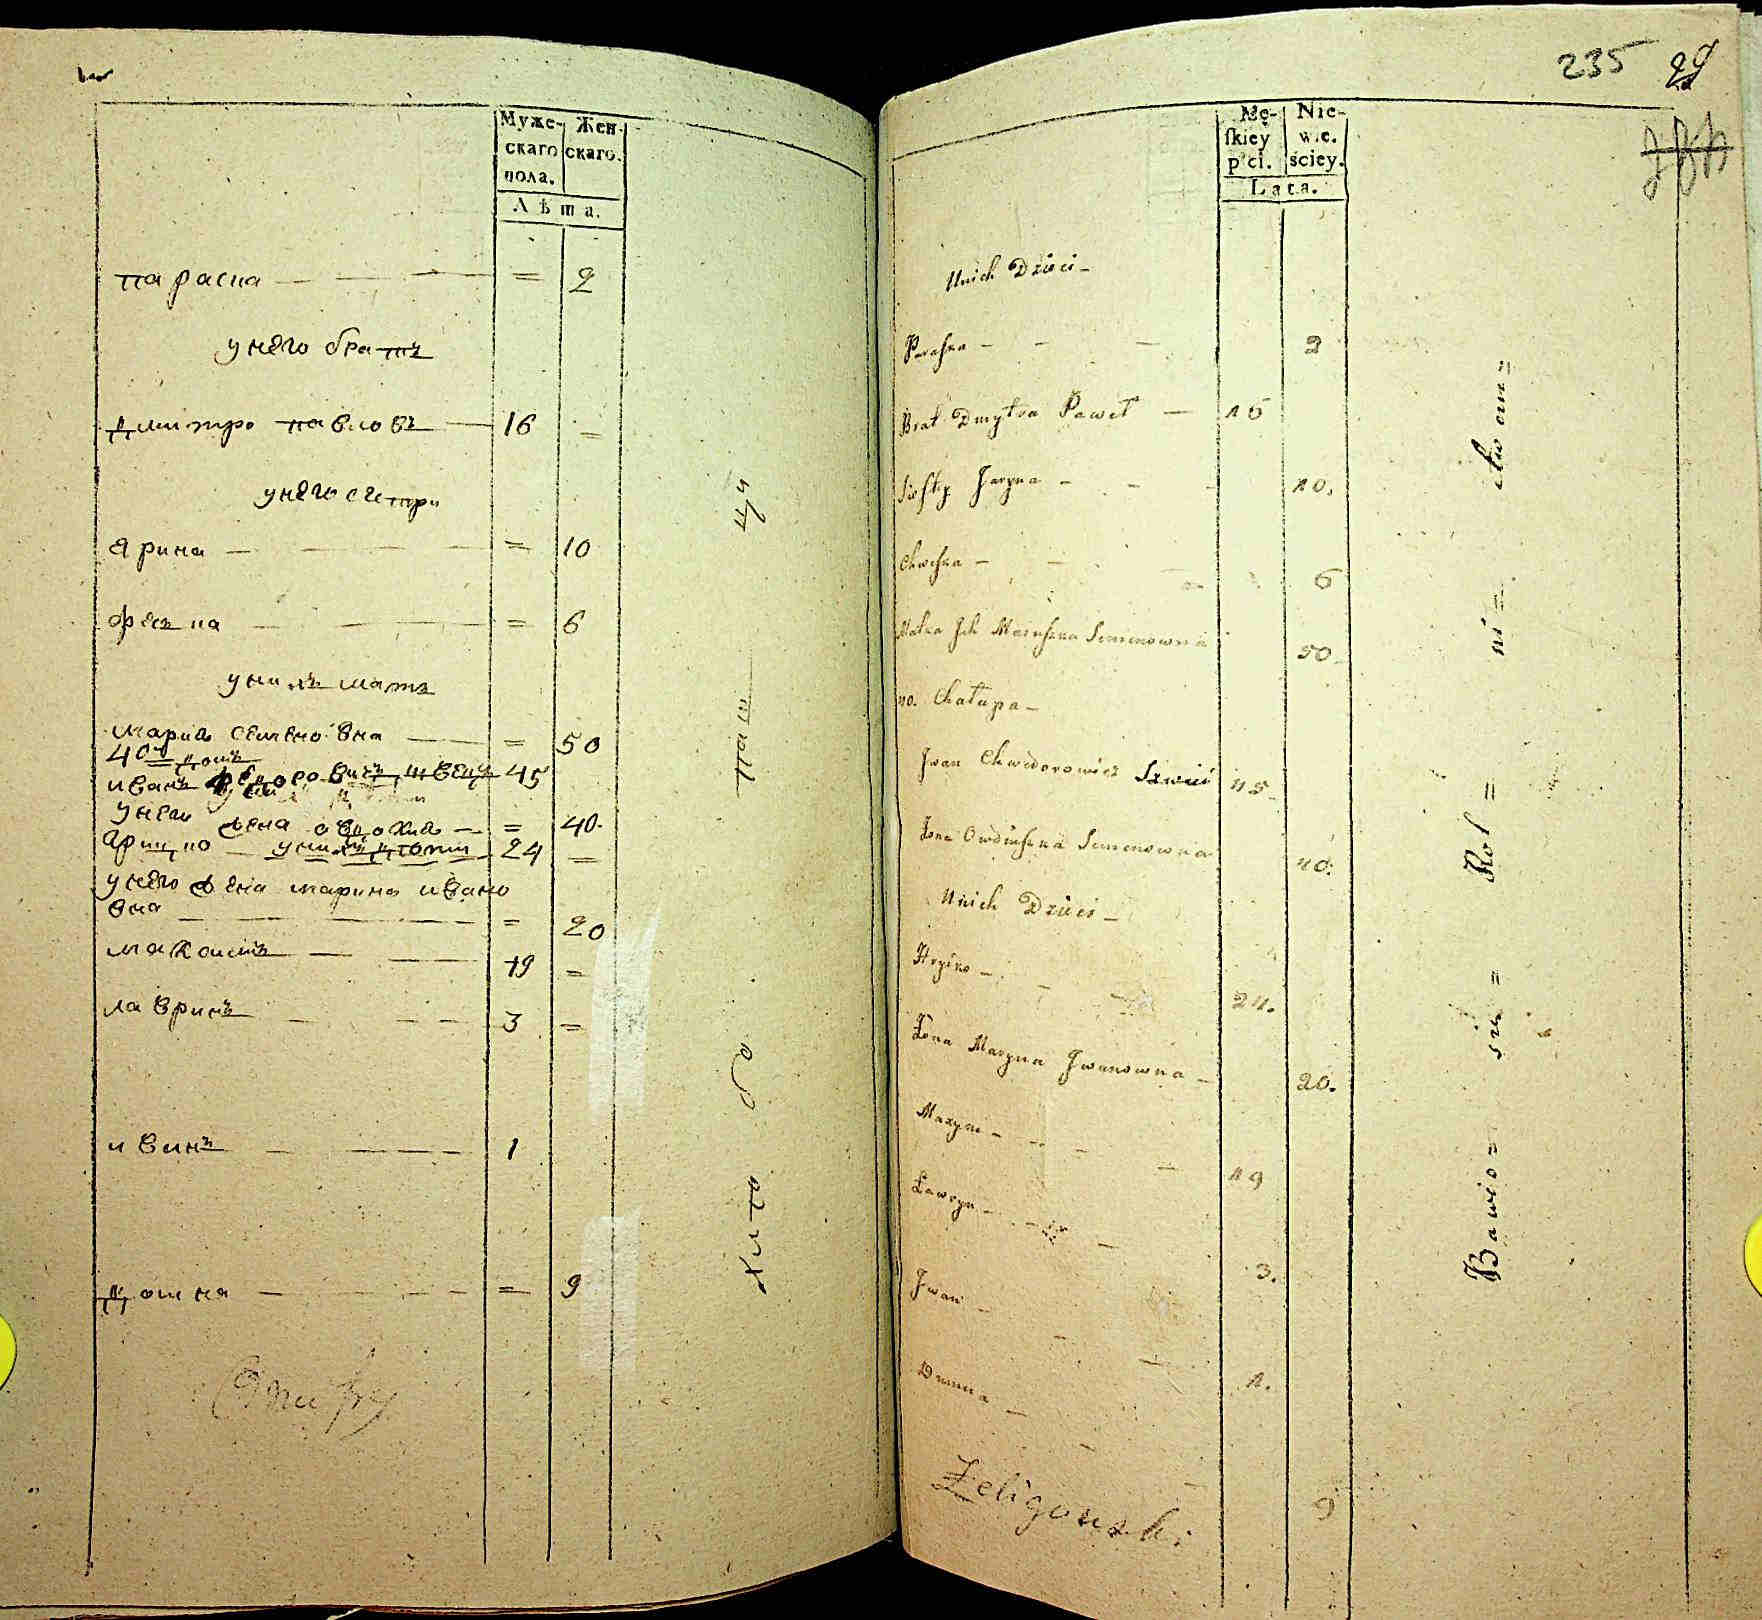 Муже- Жен-
скаго скаго.
пола.
Лѣта.
параска — = 2
у него братъ
дмитро павловъ — 16 =
у него сестри
ярина — = 10
феська — = 6
у нихъ мать
мария семеновна — = 50
40й домъ
иванъ федоровичъ швецъ 45
у него жена авдохиа — = 40.
грицко — у нихъ дѣти 24 =
у него жена марина ивано
вна — = 20
максимъ — 19 =
лавринъ — 3 =
иванъ — 1
домка — = 9
235
Mę- Nie-
skiey wie-
płci. ściey.
Lata.
U nich Dzieci –
Paraska – 2
Brat Dmytra Paweł – 16
Siostry Jaryna – 10.
Chweśka – 6
Matka Ich Maruszka Semenowna 50
40. Chałupa –
Jwan Chwedorowicz Szwiec 45
Żona Owdiuszka Semenowna 40.
U nich Dzieci –
Hryćko – 24.
Żona Maryna Jwanowna – 20.
Maxym – 19
Ławryn – 3.
Jwan – 1.
Dumna – 9
Żeligowski
Bawio= się = Rol = ni= ctwom=